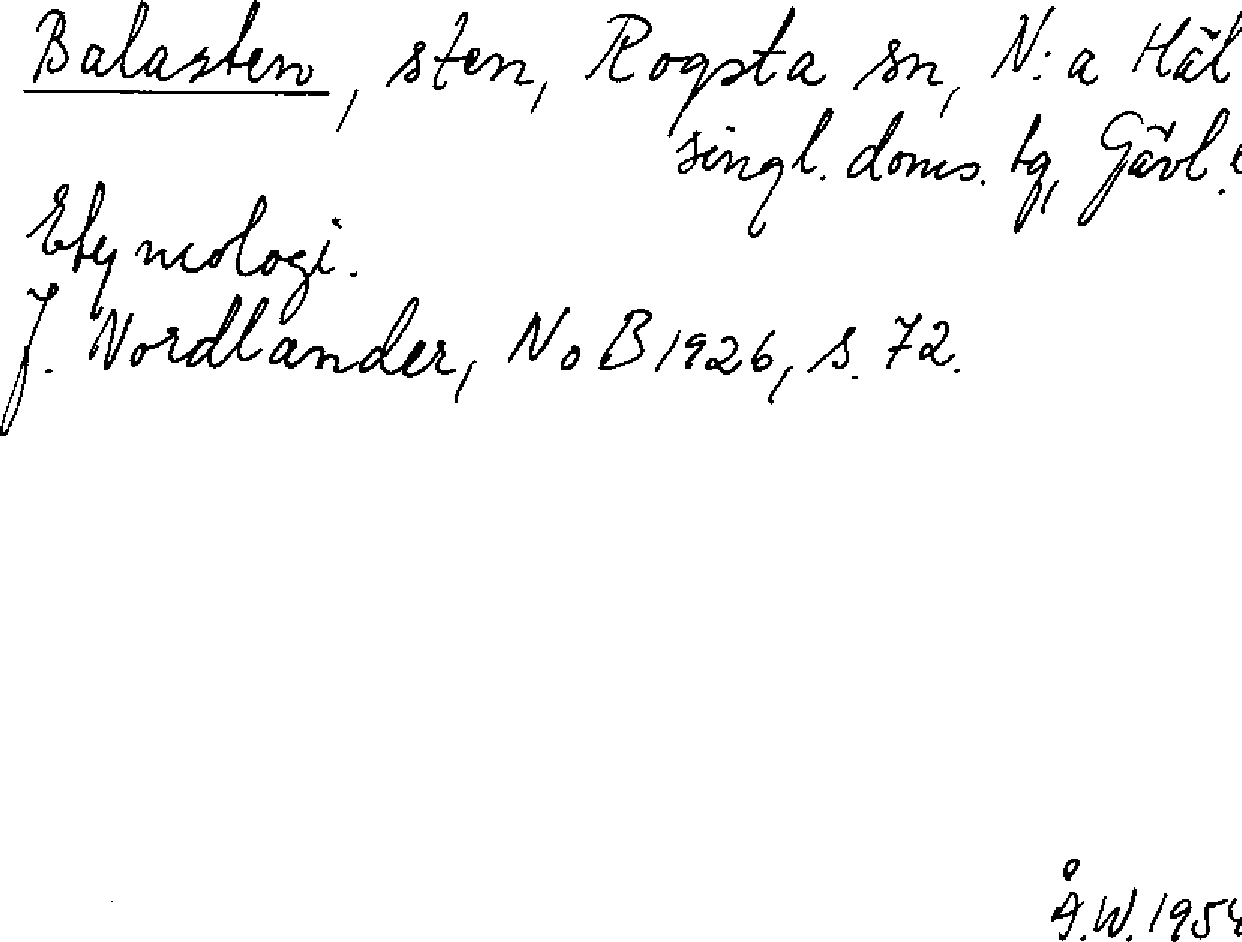 Balasten, sten, Rogsta sn, N:a Häl
singl. doms. tg, Gävl.
Etymologi.
J. Nordlander, NoB 1926, s. 72.
Å.W. 195